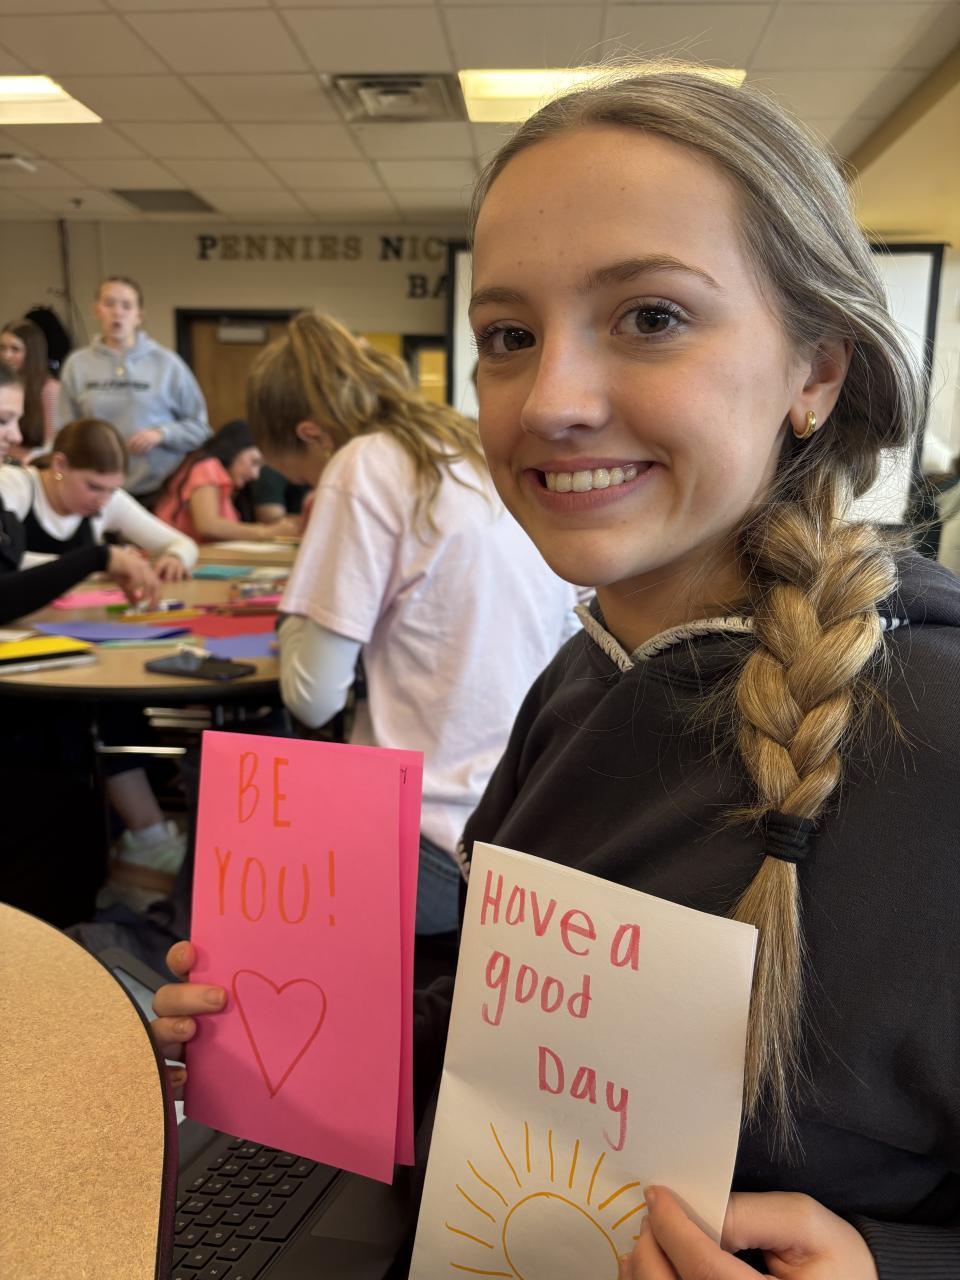 PENNIES NIC
BA
BE
YOU!
Have a
good
Day